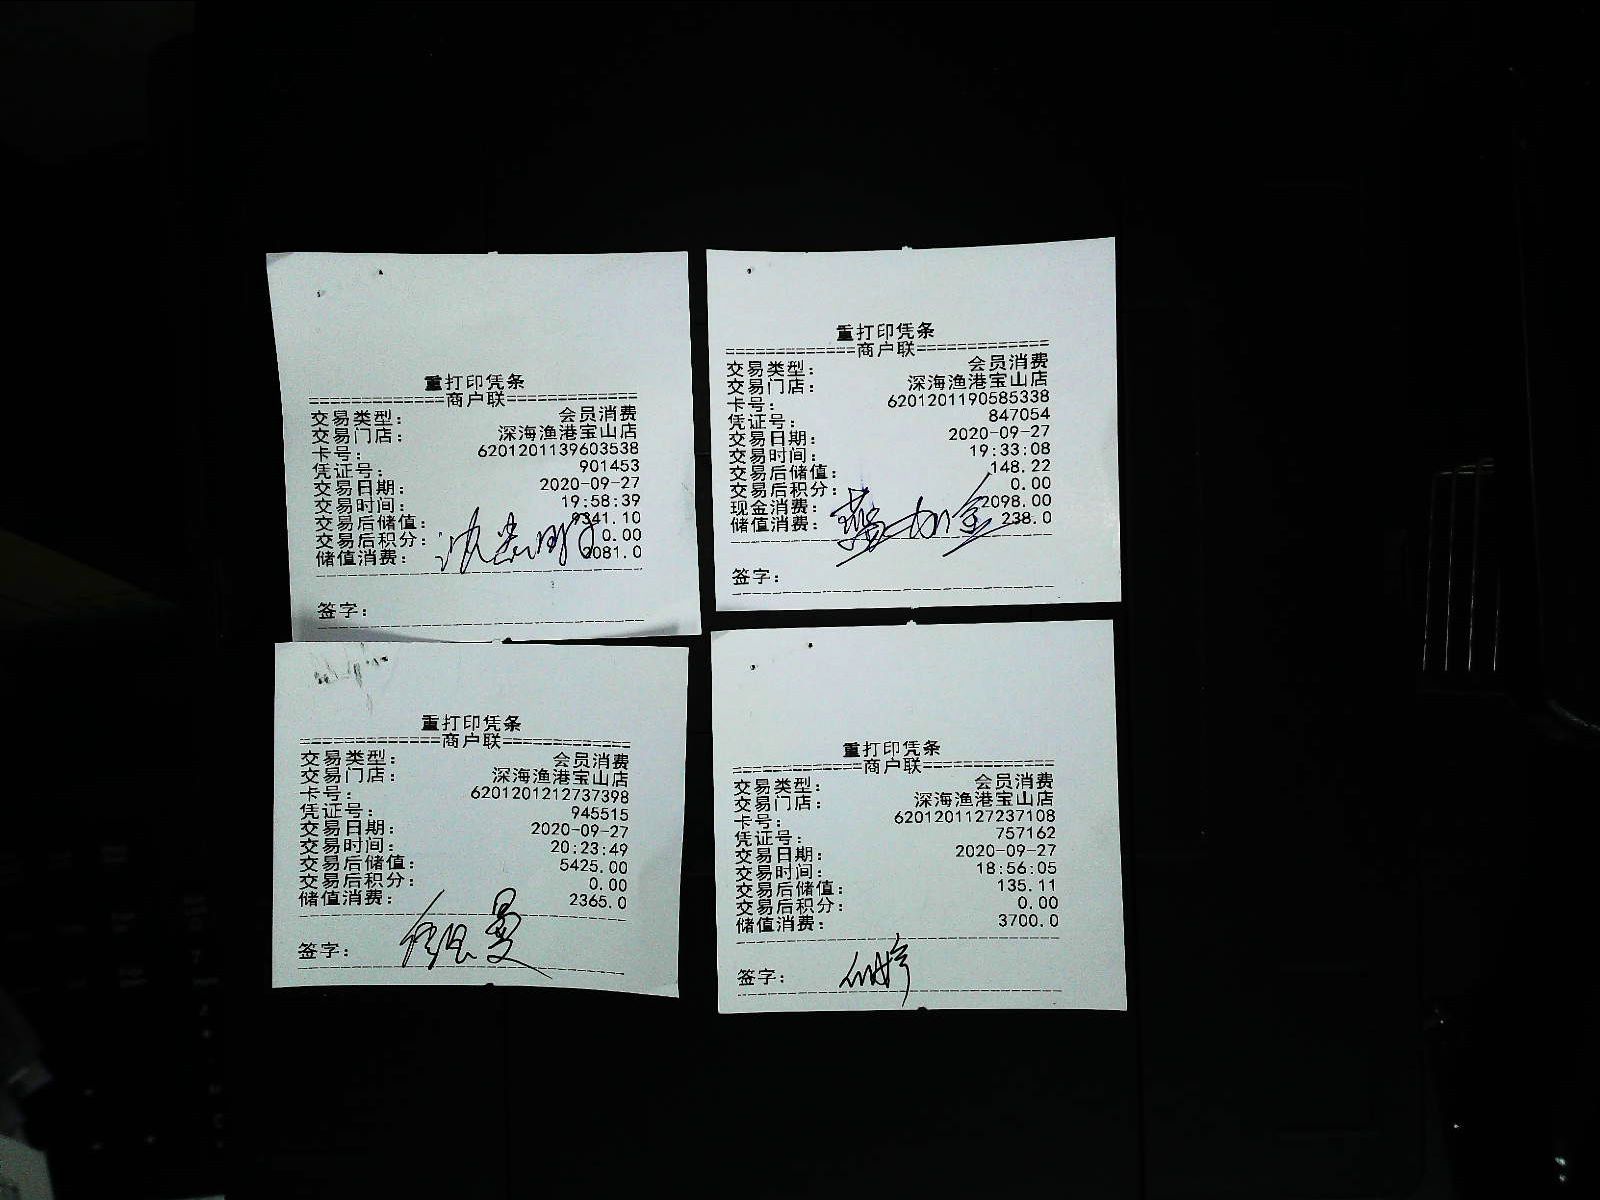 重打印凭条
=============商户联=============
交易类型: 会员消费
交易门店: 深海渔港宝山店
卡号: 6201201139603538
凭证号: 901453
交易日期: 2020-09-27
交易时间: 19:58:39
交易后储值: 9341.10
交易后积分: 0.00
储值消费:
签字:
重打印凭条
=============商户联=============
交易类型: 会员消费
交易门店: 深海渔港宝山店
卡号: 6201201190585338
凭证号: 847054
交易日期: 2020-09-27
交易时间: 19:33:08
交易后储值: 148.22
交易后积分: 0.00
现金消费: 2098.00
储值消费: 238.0
签字:
重打印凭条
=============商户联=============
交易类型: 会员消费
交易门店: 深海渔港宝山店
卡号: 6201201212737398
凭证号: 945515
交易日期: 2020-09-27
交易时间: 20:23:49
交易后储值: 5425.00
交易后积分: 0.00
储值消费: 2365.0
签字:
重打印凭条
=============商户联=============
交易类型: 会员消费
交易门店: 深海渔港宝山店
卡号: 6201201127237108
凭证号: 757162
交易日期: 2020-09-27
交易时间: 18:56:05
交易后储值: 135.11
交易后积分: 0.00
储值消费: 3700.0
签字: